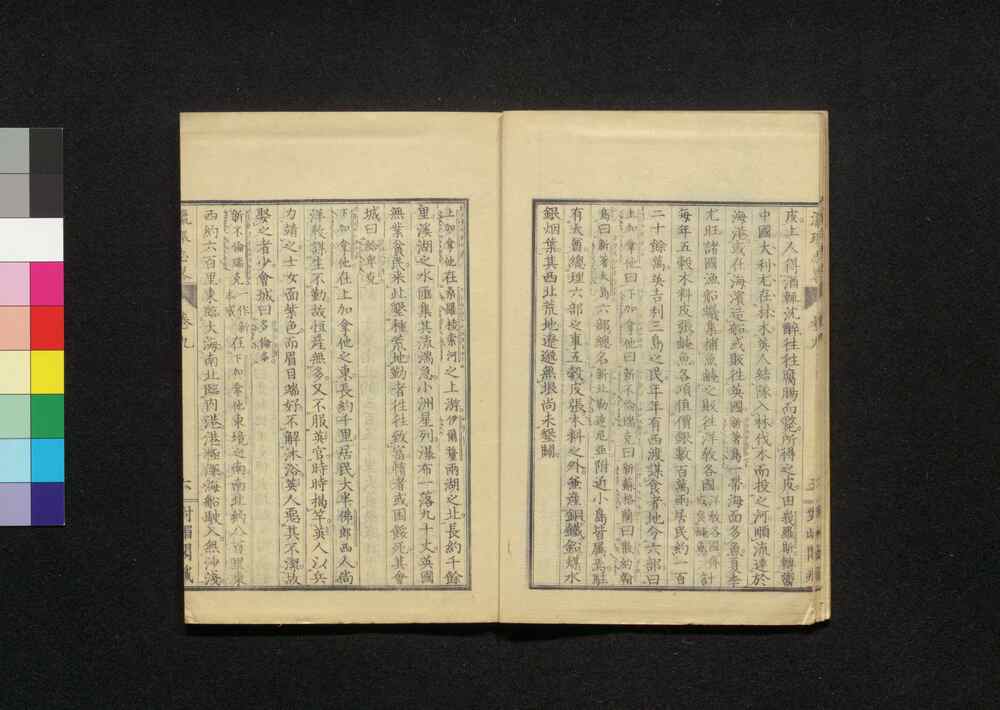 皮土人得酒輒沈醉往往腐腸而斃所得之皮由峩羅斯轉鬻
中國大利尤在林木英人結隊入林伐木而投之河順流達於
海港或在海濱造船或販往英國新著島一帶海面多魚夏季
尤旺諸國漁船蟻集捕魚醃之販往洋敎各國
每年五穀木料皮張鹹魚各項值價銀數百萬兩居民約一百
二十餘萬英吉利三島之民年年有西渡謀食者地分六部曰
上加拿他曰下加拿他曰新不倫瑞克曰新蘇格蘭曰散約翰
島曰新著大島六部總名新北勒達尼亞附近小島皆屬焉駐
有大酋總理六部之事五穀皮張木料之外兼產銅鐵鉛煤水
銀烟葉其西北荒地遼邈無垠尚未墾闢
上加拿他在桑羅棱索河之上游伊爾釐兩湖之北長約千餘
里溪湖之水匯集其流湍急小洲星列瀑布一落九十丈英國
無業貧民來此墾種荒地勤者往往致富惰者或困餒死其會
城曰給卑克
下加拿他在上加拿他之東長約千里居民大半佛郎西人尚
洋敎謀生不勤故恒產無多又不服英官時時揭竿英人以兵
力靖之士女面紫色而眉目端好不解沐浴英人惡其不潔故
娶之者少會城曰多倫多
新不倫瑞克一作新本威在下加拿他東境之南南北約八百里東
西約六百里東臨大海南北臨內港港極深海船駛入無沖淺
瀛環志畧 卷九 六